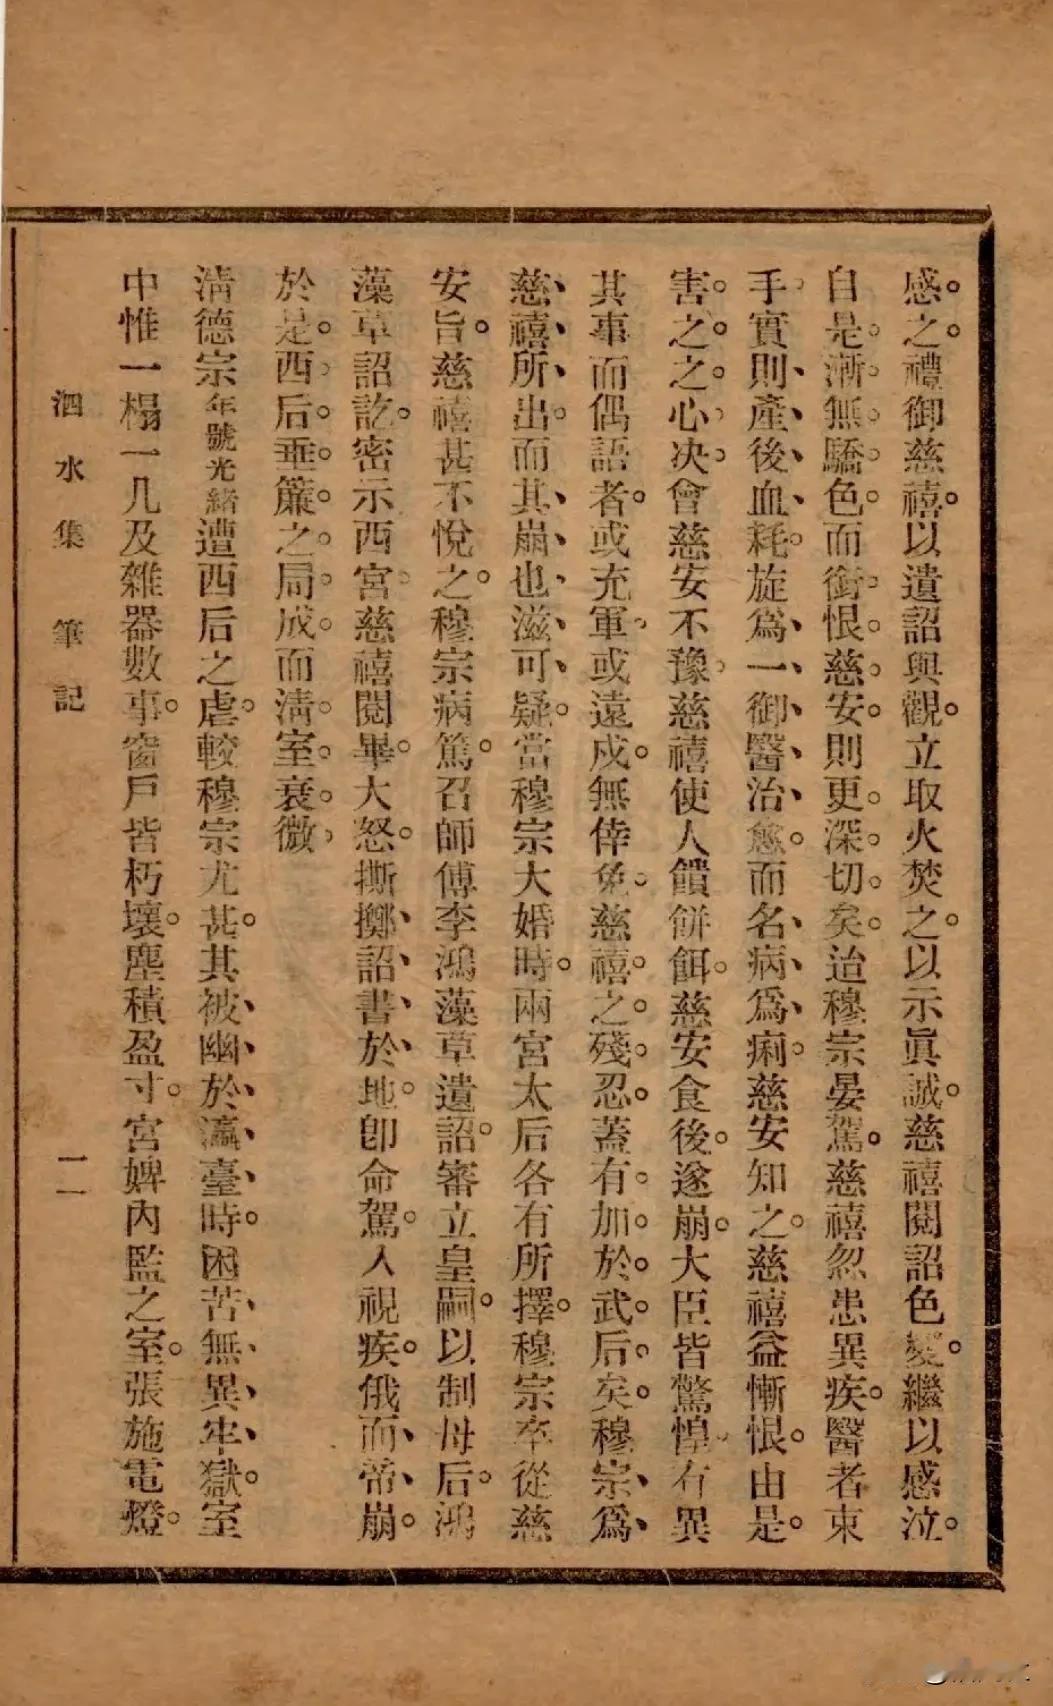 感之。禮御慈禧。以遺詔與觀。立取火焚之。以示眞誠。慈禧閱詔色變。繼以感泣。
自是漸無驕色。而銜恨慈安。則更深切矣。迨穆宗晏駕。慈禧忽患異疾。醫者束
手。實則產後血耗。旋爲一御醫治愈。而名病爲痢。慈安知之。慈禧益慚恨。由是
害之之心决。會慈安不豫。慈禧使人饋餅餌。慈安食後。遂崩。大臣皆驚惶。有異
其事而偶語者。或充軍。或遠戍。無倖免。慈禧之殘忍。蓋有加於武后矣。穆宗爲
慈禧所出。而其崩也。滋可疑。當穆宗大婚時。兩宮太后各有所擇。穆宗卒從慈
安旨。慈禧甚不悅之。穆宗病篤。召師傅李鴻藻草遺詔。審立皇嗣。以制母后。鴻
藻草詔訖。密示西宮。慈禧閱畢。大怒。撕擲詔書於地。卽命駕。入視疾。俄而帝崩。
於是西后垂簾之局成。而淸室衰微。
淸德宗年號光緒遭西后之虐。較穆宗尤甚。其被幽於瀛臺時。困苦無異牢獄。室
中惟一榻一几及雜器數事。窗戶皆朽壞。塵積盈寸。宮婢內監之室。張施電燈。
泗水集 筆記 二一